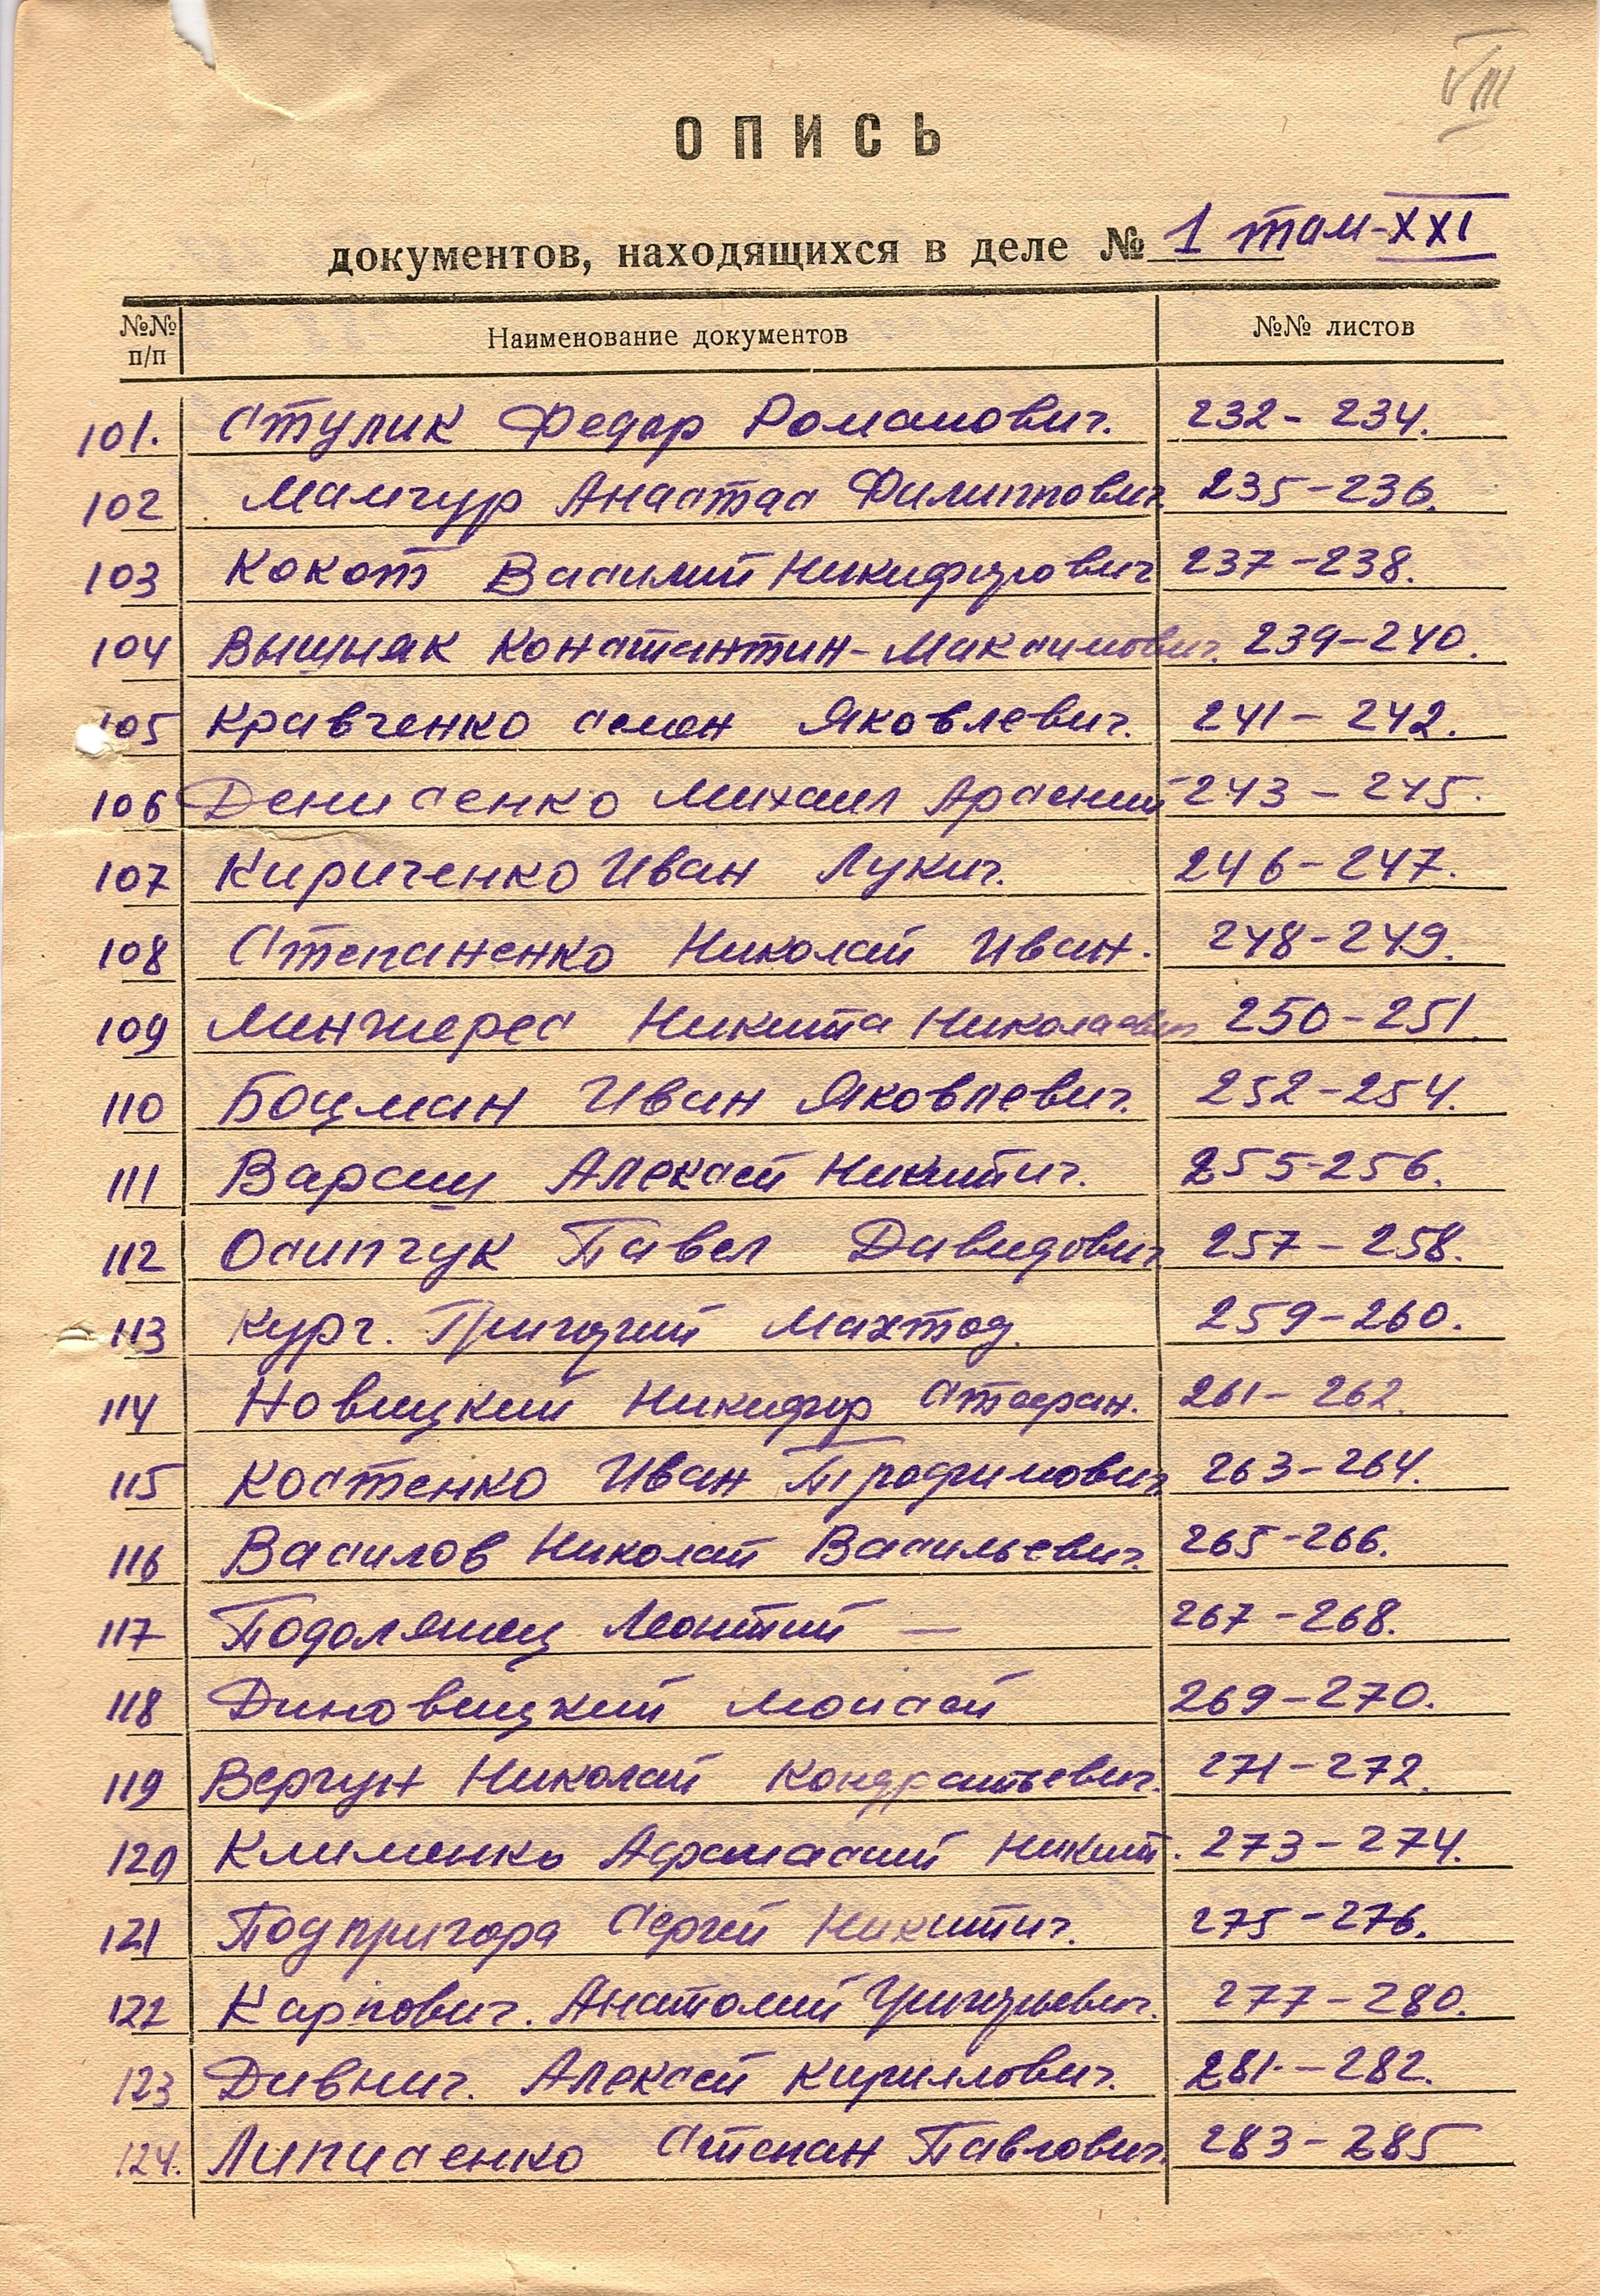 VIII
ОПИСЬ
документов, находящихся в деле № 1 том-XXI
№№ п/п Наименование документов №№ листов
101. Стулик Федор Романович. 232- 234.
102 Мамчур Анастас Филиппович. 235-236.
103 Кокот Василий Никифорович 237-238.
104 Выщняк Константин-Максимович. 239-240.
105 Кравченко Семен Яковлевич. 241- 242.
106 Денисенко Михаил Арсений 243 - 245.
107 Кириченко Иван Лукич. 246-247.
108 Степаненко Николай Иван. 248-249.
109 Минжерес Никита Николаевич 250-251
110 Боцман Иван Яковлевич. 252-254.
111 Алексей Никитич. 255-256.
112 Осипчук Павел Давидович 257- 258.
113 Григорий 259-260.
114 Новицкий Никифор Стефан. 261- 262.
115 Костенко Иван Трофимович 263-264.
116 Василов Николай Васильевич. 265-266.
117 Подолянец Леонтий — 267-268.
118 Диновицкий Моисей 269-270.
119 Вергун Николай Кондратьевич. 271-272.
120 Клименко Афанасий Никит. 273-274.
121 Подпригора Сергей Никитич. 275-276.
122 Карпович. Анатолий Григорьевич. 277-280.
123 Дивнич. Алексей Кириллович. 281-282.
124. Липисенко Степан Павлович. 283-285